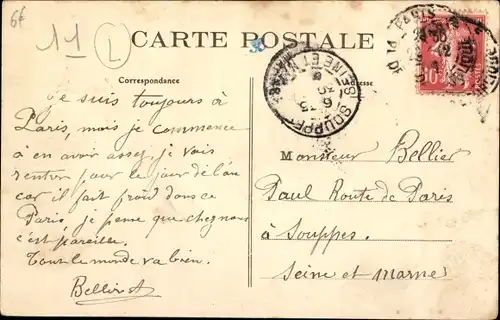 6f
11
L
CARTE POSTALE
Correspondance
Adresse
Je suis toujours à
Paris, mais je commence
à en avoir assez, je vais
rentrer pour le jour de l'an
car il fait froid dans ce
Paris, je pense que chez nous
c'est pareille.
Tout le monde va bien.
Bellier A
Monsieur Bellier
Paul Route de Paris
à Souppes.
Seine et Marne
SOUPPES
SEINE ET MARNE
PARIS
10